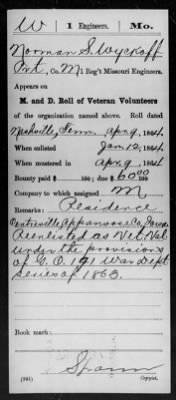 W | 1 Engineers. | Mo.
Norman S. Wyckoff
Pvt, Co. M, 1 Reg't Missouri Engineers.
Appears on
M. and D. Roll of Veteran Volunteers
of the organization named above. Roll dated
Nashville, Tenn. Apr. 9, 1864.
When enlisted Jan. 12, 1864.
When mustered in Apr. 9, 1864.
Bounty paid $ 100; due $ 60 00/100
Company to which assigned M
Remarks: Residence
Centreville, Appanoose Co. Iowa
Reenlisted as Vet. Vol.
under the provisions
of G.O. 191 War Dept.
series of 1863.
Book mark:
(341) Copyist.